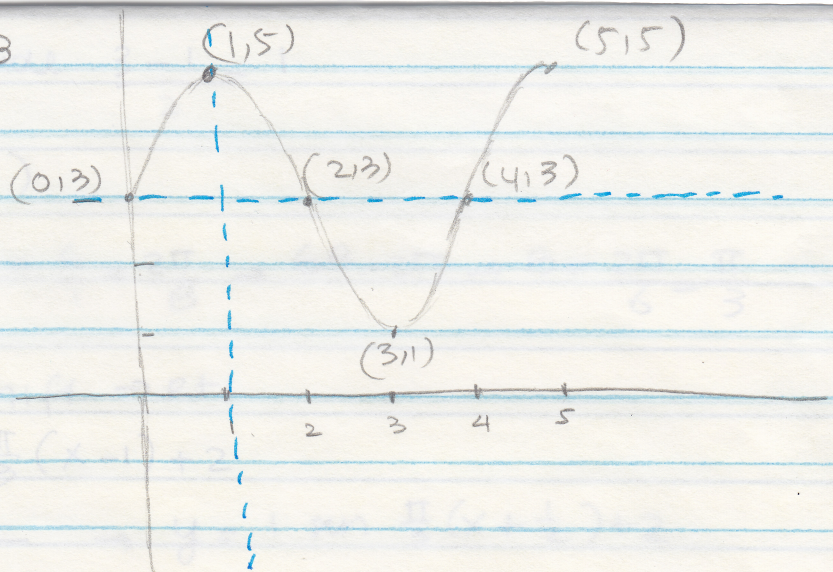 3
(1,5)
(5,5)
(0,3)
(2,3)
(4,3)
(3,1)
1 2 3 4 5